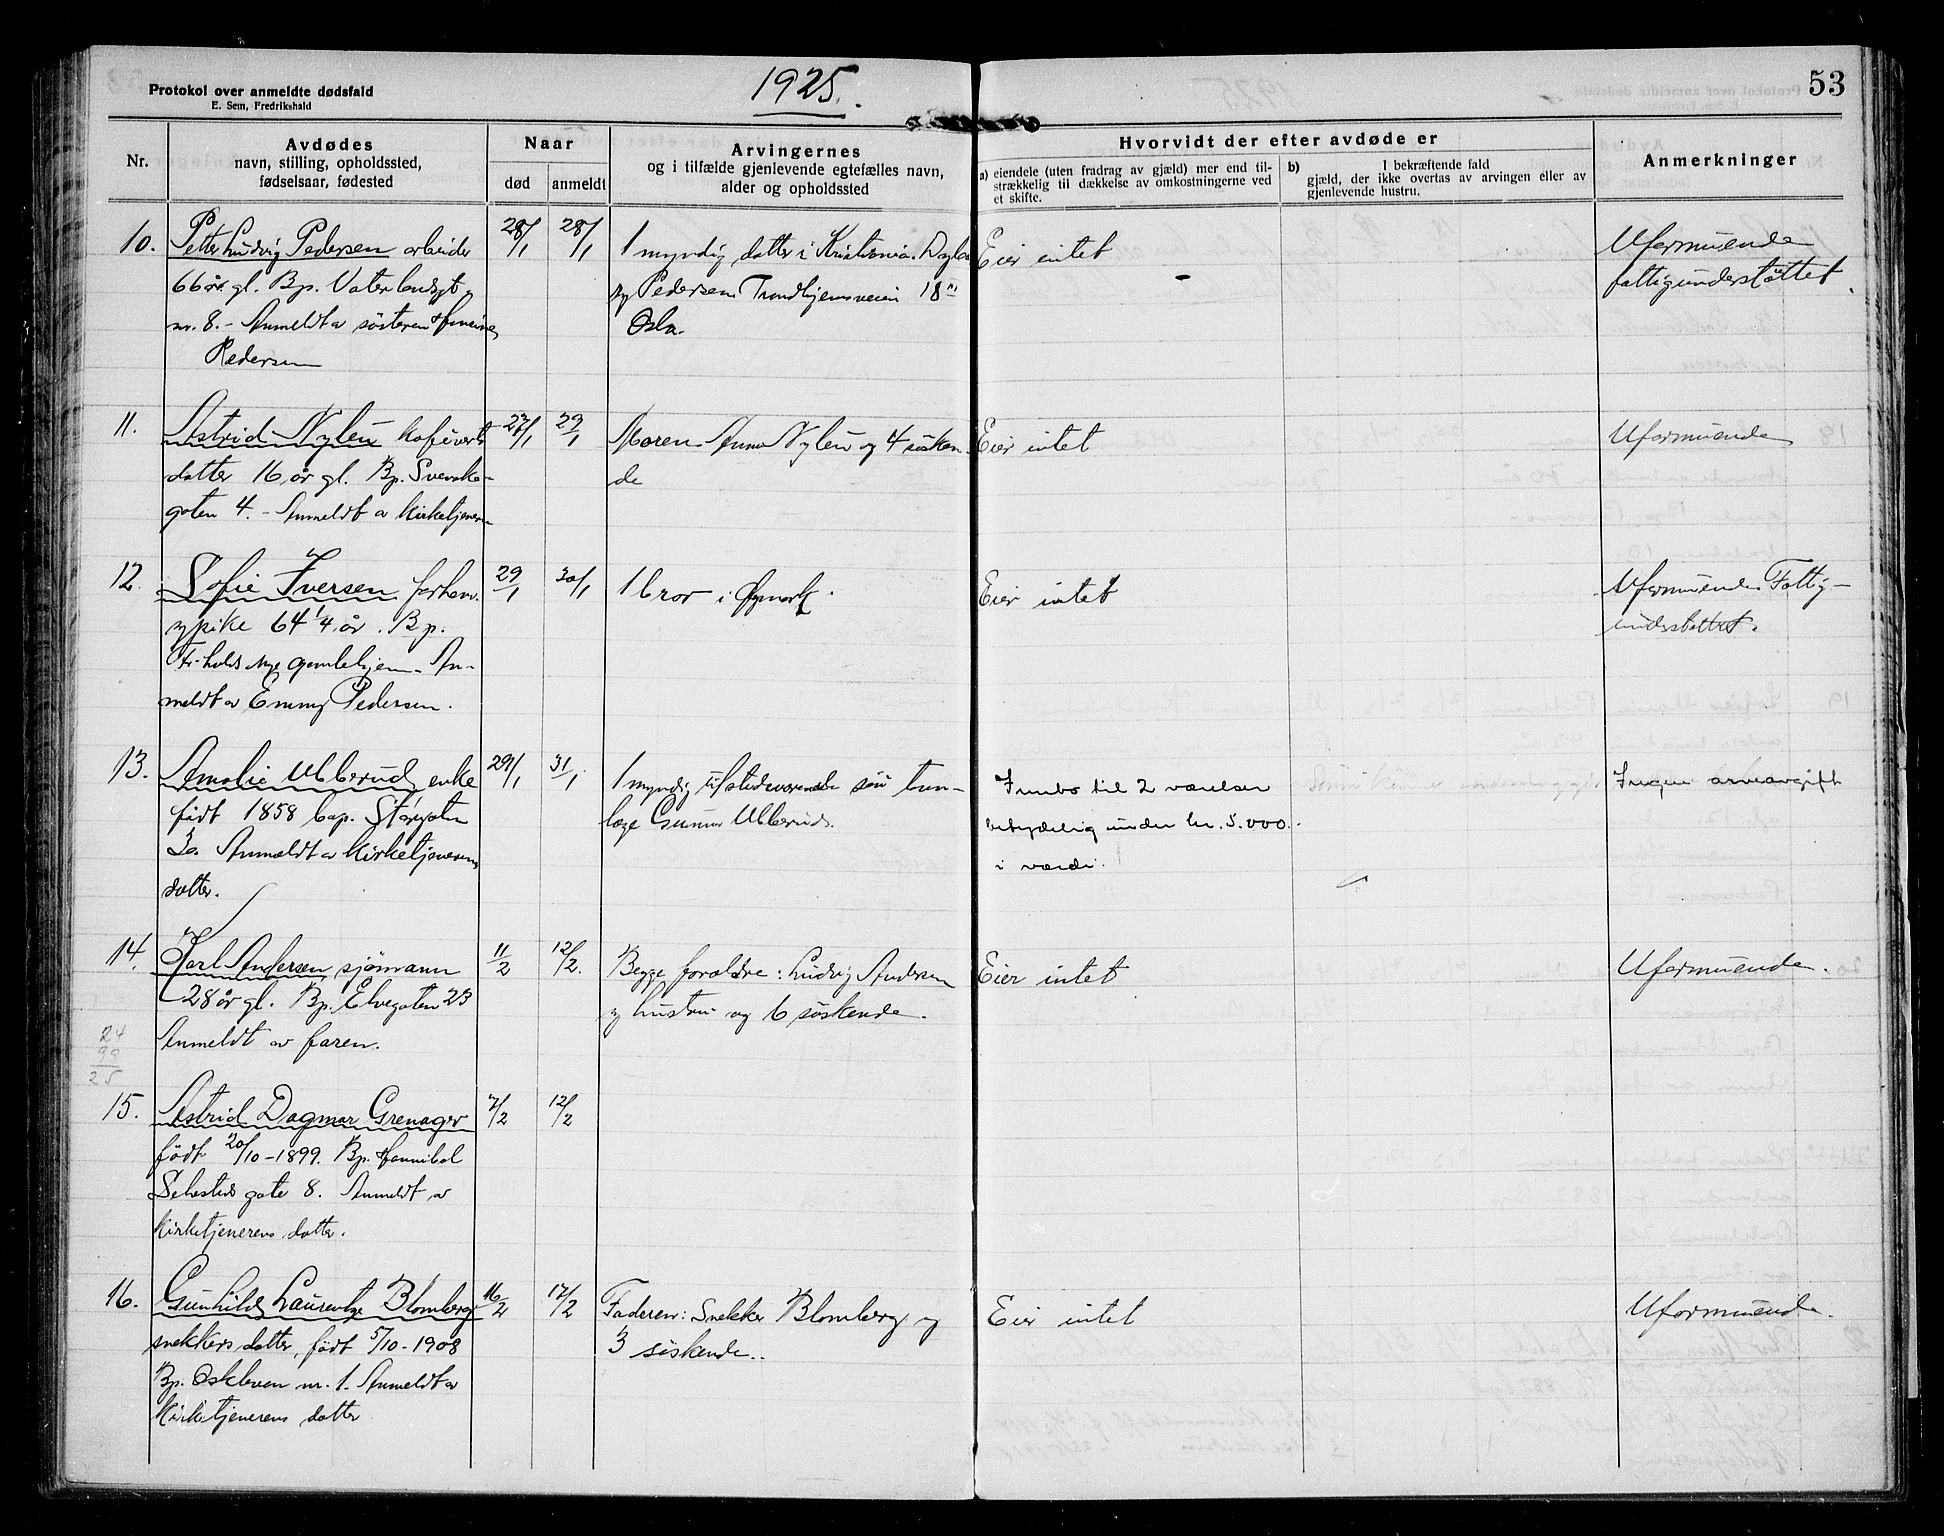 Protokol over anmeldte dødsfald
E. Sem, Fredrikshald
1925.
53
Nr.
Avdødes
navn, stilling, opholdssted,
fødselsaar, fødested
Naar
død
anmeldt
Arvingernes
og i tilfælde gjenlevende egtefælles navn,
alder og opholdssted
Hvorvidt der efter avdøde er
a) eiendele (uten fradrag av gjæld) mer end til-
strækkelig til dækkelse av omkostningerne ved
et skifte.
b) I bekræftende fald
gjæld, der ikke overtas av arvingen eller av
gjenlevende hustru.
Anmerkninger
10.
Petter Ludvig Pedersen arbeider
66 år. gl. Bp. Vaterlandsgt.
nr. 8. - Anmeldt av søsteren
Pedersen
28/1
28/1
1 myndig datter i Kristiania.
Pedersen Trondhjemsveien 18
Oslo.
Eier intet
-
Uformuende
fattigunderstøttet.
11.
Astrid Nylén kaféverts
datter 16 år gl. Bp. Svenske-
gaten 4. - Anmeldt av kirketjeneren
27/1
29/1
Moren Anna Nylén og 4 søsken-
de
Eier intet
Uformuende
12.
Sofie Iversen forhenv.
sypike 64 1/4 år. Bp.
Fr.halds nye gamlehjem - An-
meldt av Emmy Pedersen.
29/1
30/1
1 bror i Øymark.
Eier intet
Uformuende Fattig-
understøttet.
13.
Amalie Ulleru​d enke
født 1858 bop. Storgaten
3a. Anmeldt av Kirketjenerens
datter.
29/1
31/1
1 myndig tilstedeværende søn tan-
læge Gunnar Ullerud.
Innbo til 2 værelser
betydelig under kr. 5.000.-
i værdi.
Ingen arveavgift
14.
Karl Andersen sjømann
28 år gl. Bp. Elvegaten 23
Anmeldt av faren.
11/2
12/2.
Begge forældre: Ludvig Andersen
og hustru og 6 søskende.
Eier intet
Uformuende.
24
99
25
15.
Astrid Dagmar Grenager
født 20/10-1899. Bp. Hannibal
Sehesteds gate 8. Anmeldt av
Kirketjenerens datter.
7/2
12/2
16.
Gunhild Laurentze Blomberg
snekkers datter, født 5/10-1908
Bp. Oskleven nr. 1. Anmeldt av
Kirketjenerens datter
16/2
17/2
Faderen: Snekker Blomberg og
3 søskende..
Eier intet
Uformuende.